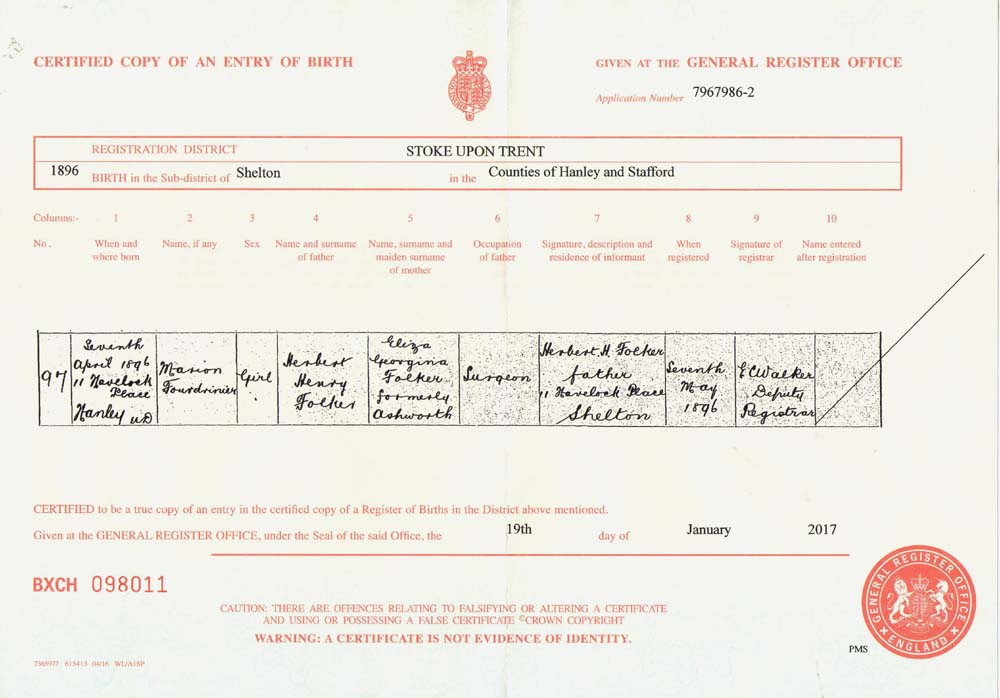 CERTIFIED COPY OF AN ENTRY OF BIRTH
GIVEN AT THE GENERAL REGISTER OFFICE
Application Number 7967986-2
REGISTRATION DISTRICT STOKE UPON TRENT
1896 BIRTH in the Sub-district of Shelton in the Counties of Hanley and Stafford
Columns:- 1 2 3 4 5 6 7 8 9 10
No. When and where born Name, if any Sex Name and surname of father Name, surname and maiden surname of mother Occupation of father Signature, description and residence of informant When registered Signature of registrar Name entered after registration
97
Seventh
April 1896
11 Havelock
Place
Hanley UD
Marion
Fourdrinier
Girl
Herbert
Henry
Folker
Eliza
Georgina
Folker
formerly
Ashworth
Surgeon
Herbert H. Folker
father
11 Havelock Place
Shelton
Seventh
May
1896
E C Walker
Deputy
Registrar
CERTIFIED to be a true copy of an entry in the certified copy of a Register of Births in the District above mentioned.
Given at the GENERAL REGISTER OFFICE, under the Seal of the said Office, the 19th day of January 2017
BXCH 098011
CAUTION: THERE ARE OFFENCES RELATING TO FALSIFYING OR ALTERING A CERTIFICATE
AND USING OR POSSESSING A FALSE CERTIFICATE ©CROWN COPYRIGHT
WARNING: A CERTIFICATE IS NOT EVIDENCE OF IDENTITY.
GENERAL REGISTER OFFICE
ENGLAND
PMS
7365977 615413 04/16 WL/A1SP